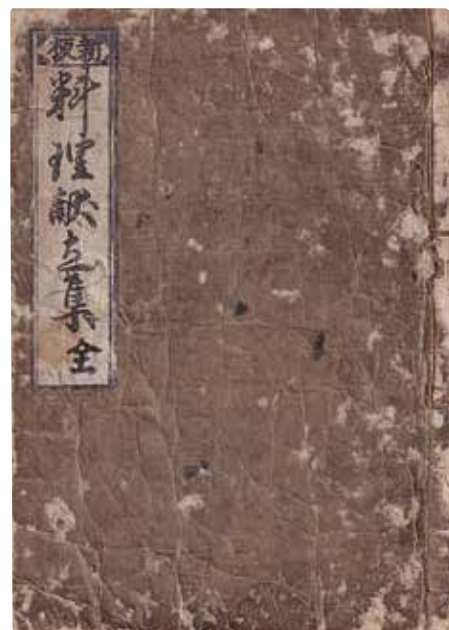 新板
料理献立集 全